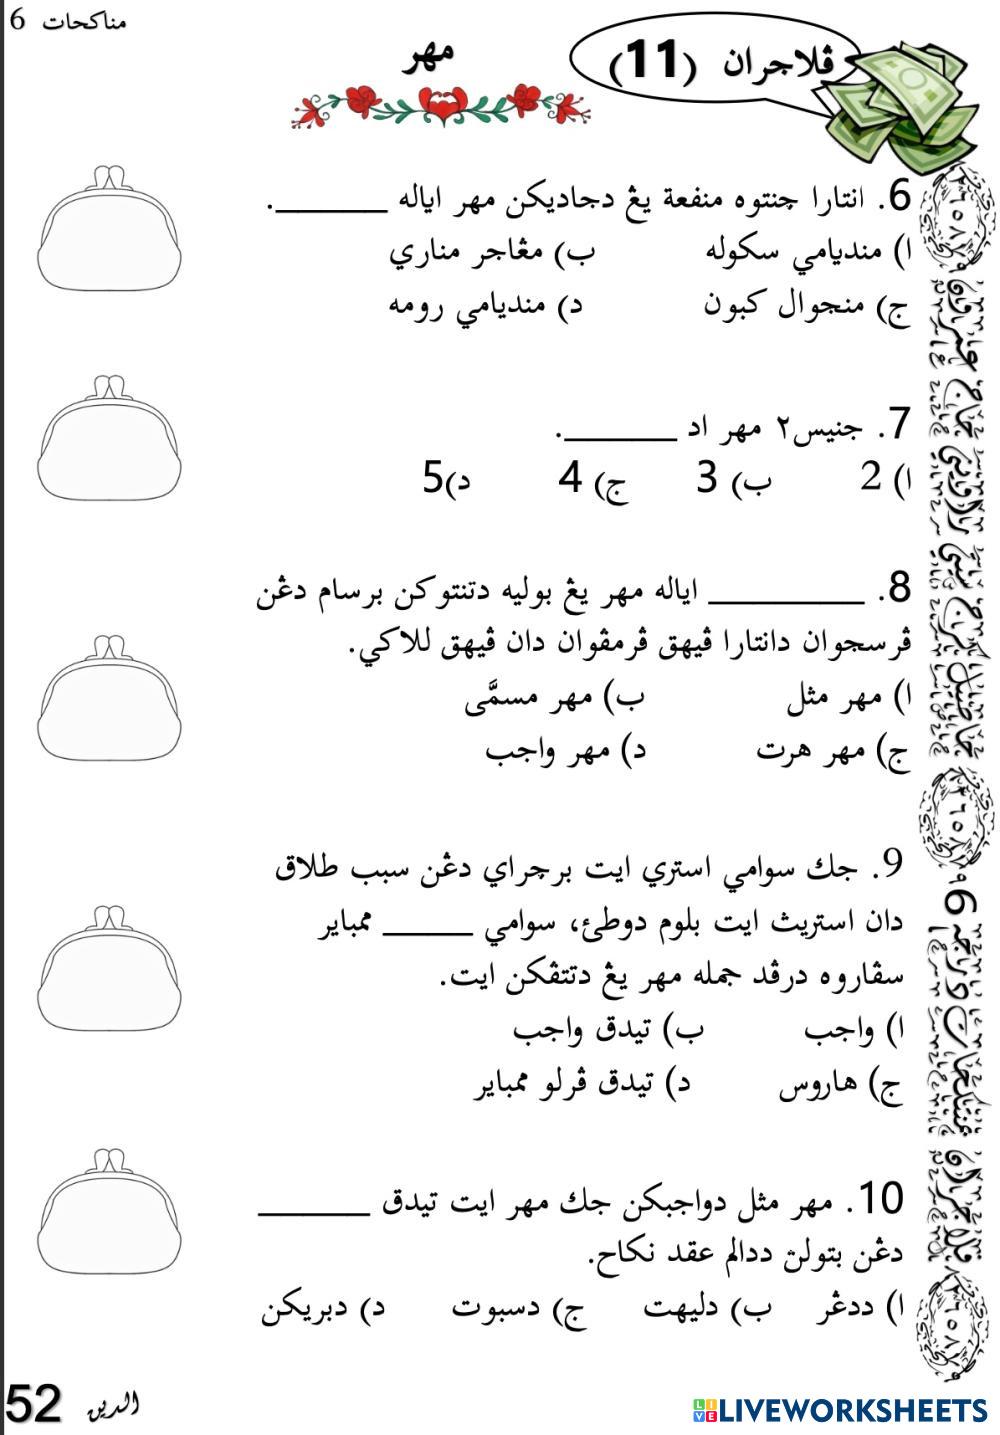 مناکحات 6
ڤلاجران (11)
مهر
6. انتارا چنتوه منفعة يڠ دجاديکن مهر اياله ______.
ا) منديامي سکوله ب) مڠاجر مناري
ج) منجوال کبون د) منديامي رومه
7. جنيس٢ مهر اد ______.
ا) 2 ب) 3 ج) 4 د)5
8. ________ اياله مهر يڠ بوليه دتنتوکن برسام دڠن
ڤرسجوان دانتارا ڤيهق ڤرمڤوان دان ڤيهق للاکي.
ا) مهر مثل ب) مهر مسمَّى
ج) مهر هرت د) مهر واجب
9. جك سوامي استري ايت برچراي دڠن سبب طلاق
دان استريث ايت بلوم دوطئ، سوامي _____ ممباير
سڤاروه درڤد جمله مهر يڠ دتتڤکن ايت.
ا) واجب ب) تيدق واجب
ج) هاروس د) تيدق ڤرلو ممباير
10. مهر مثل دواجبکن جك مهر ايت تيدق ______
دڠن بتولن ددالم عقد نکاح.
ا) ددڠر ب) دليهت ج) دسبوت د) دبريکن
52 الدين
LIVEWORKSHEETS